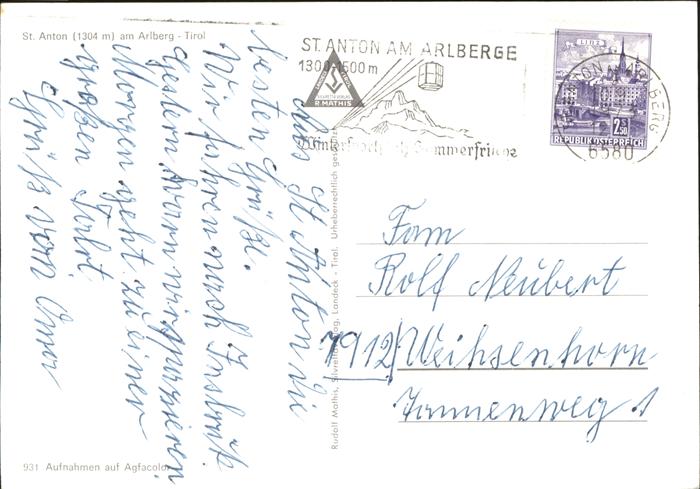 St. Anton (1304 m) am Arlberg - Tirol
ST. ANTON AM ARLBERGE
1300-1500 m
R. MATHIS
Wintersport Sommerfrische
LINZ
2.50
REPUBLIK ÖSTERREICH
ST. ANTON ARLBERG
6580
Aus St Anton die
besten Grüße.
Wir fahren nach Insbruk.
Gestern waren wir
Morgen geht zu einer
großen Fahrt
Grüße von
Fam
Rolf Neubert
7912 Weihsenhorn
Tannenweg 1
Rudolf Mathis, Silvretta-Verlag, Landeck - Tirol. Urheberrechtlich
931 Aufnahmen auf Agfacolor